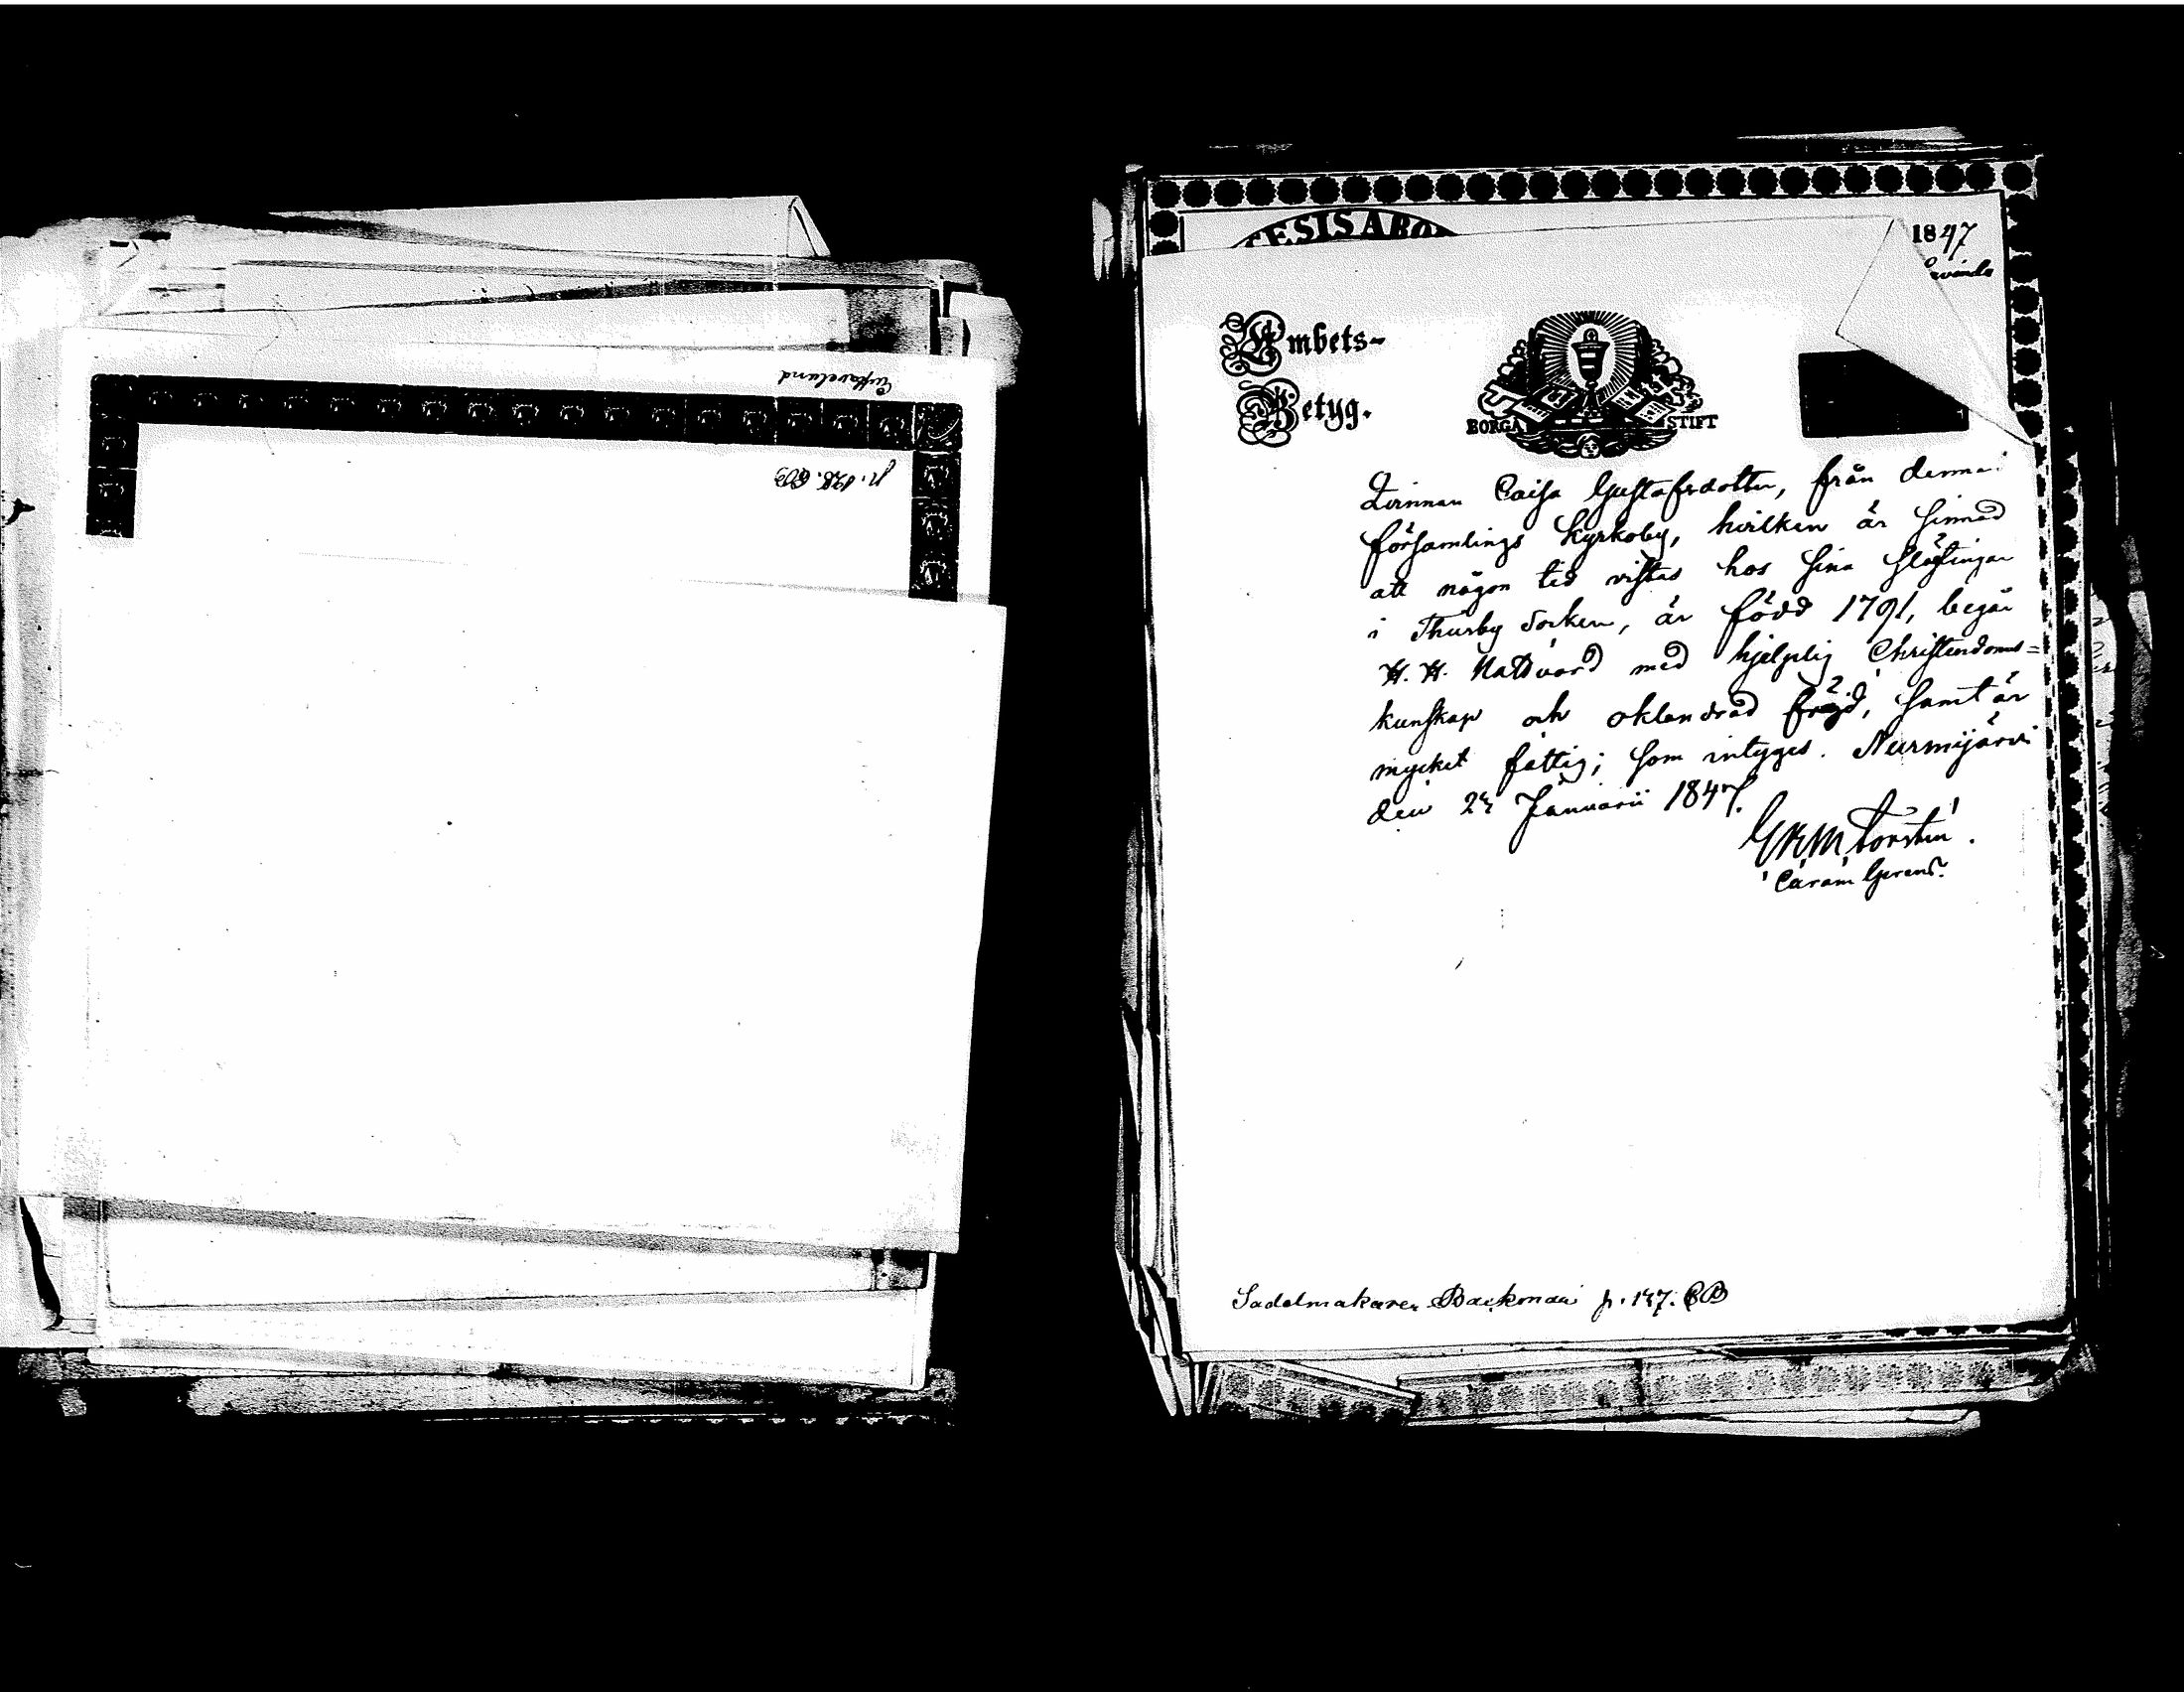 p. 128. CB
1847
Embets-
Betyg.
BORGÅ STIFT
Qvinnan Caisa Gustafsdotter, från denna
församlings Kyrkoby, hvilken är sinnad
att någon tid vistas hos sina släktingar
i Thusby Socken, är född 1791, begår
H. H. Nattvard med hjelplig Christendoms=
kunskap och oklandrad frejd, samt är
mycket fattig; som intygas. Nurmijärvi
den 24 Januarii 1847.
Forstén.
Sadelmakaren Backman p. 147. CB